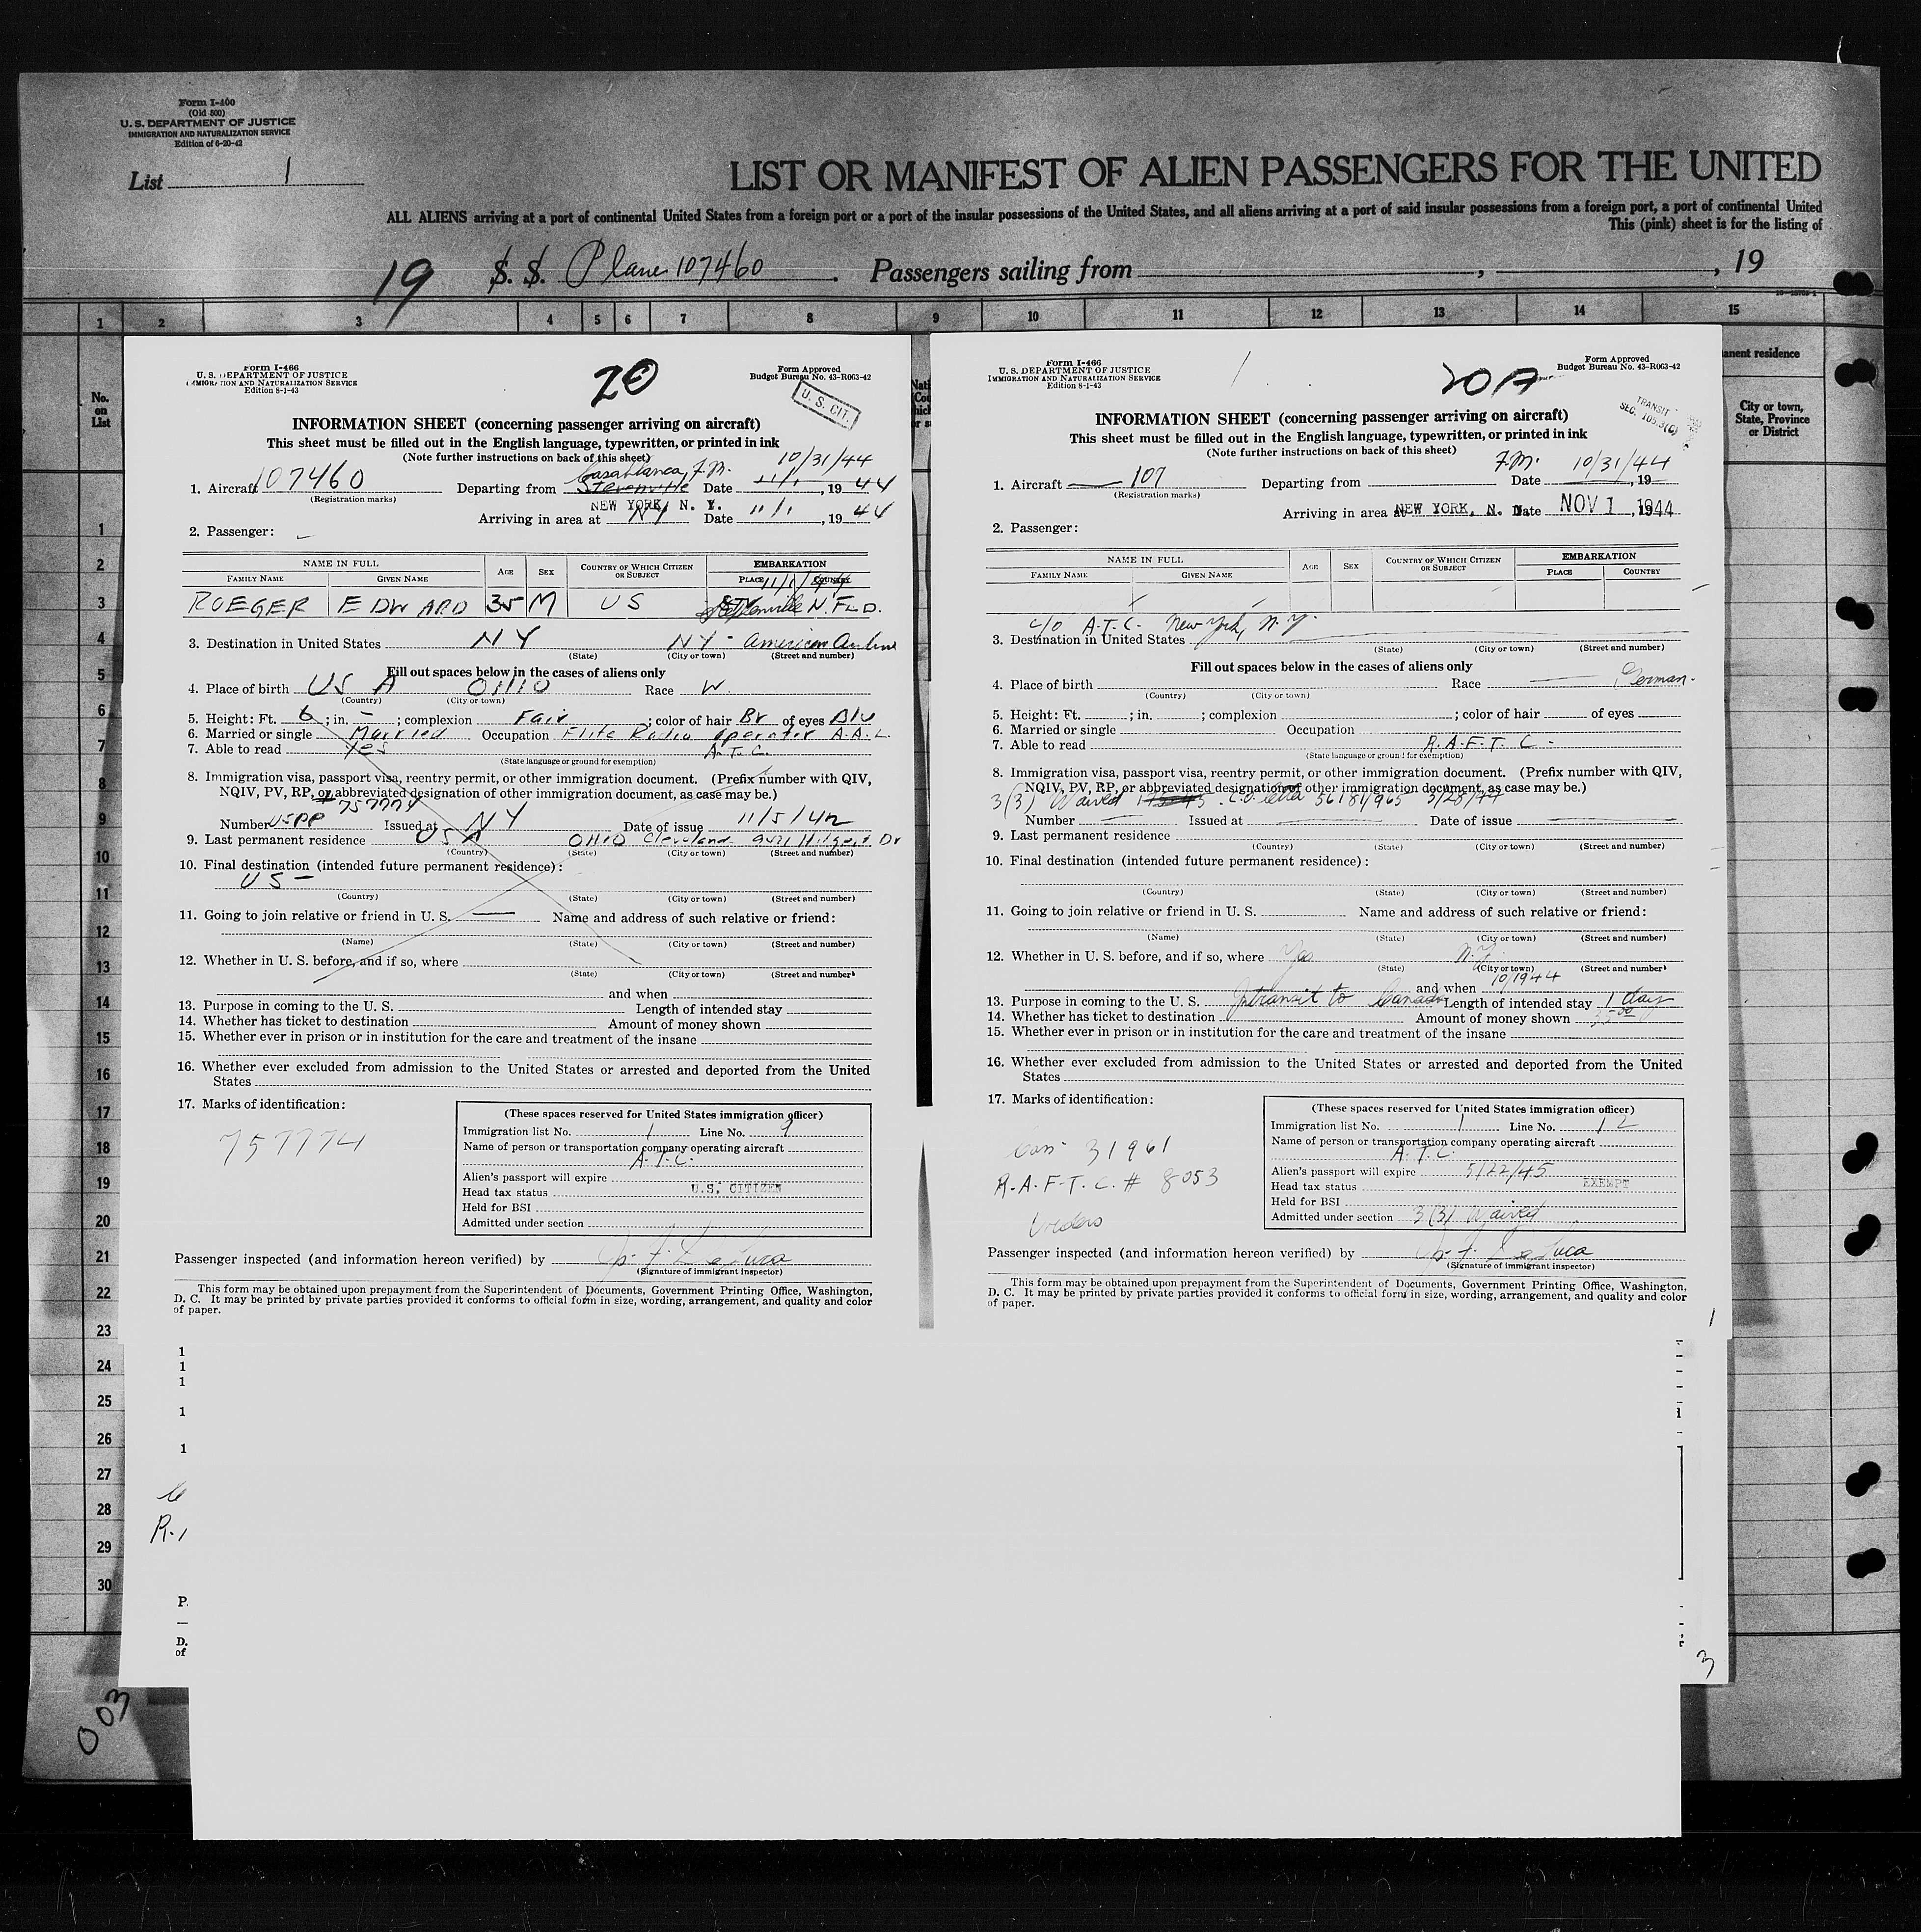 Form I-400
(Old 500)
U. S. DEPARTMENT OF JUSTICE
IMMIGRATION AND NATURALIZATION SERVICE
Edition of 6-20-42
List 1
LIST OR MANIFEST OF ALIEN PASSENGERS FOR THE UNITED
ALL ALIENS arriving at a port of continental United States from a foreign port or a port of the insular possessions of the United States, and all aliens arriving at a port of said insular possessions from a foreign port, a port of continental United
This (pink) sheet is for the listing of
19 S. S. Plane 107460 Passengers sailing from , , 19
1 2 3 4 5 6 7 8 9 10 11 12 13 14 15
No. on List
anent residence
City or town, State, Province or District
1
2
3
4
5
6
7
8
9
10
11
12
13
14
15
16
17
18
19
20
21
22
23
24
25
26
27
28
29
30
003
Form I-466
U. S. DEPARTMENT OF JUSTICE
IMMIGRATION AND NATURALIZATION SERVICE
Edition 8-1-43
20
Form Approved
Budget Bureau No. 43-R063-42
U. S. CIT.
INFORMATION SHEET (concerning passenger arriving on aircraft)
This sheet must be filled out in the English language, typewritten, or printed in ink
(Note further instructions on back of this sheet)
Casablanca, F.M. 10/31/44
1. Aircraft 107460 Departing from Stevenville Date 11/1, 1944
(Registration marks)
NEW YORK, N. Y.
Arriving in area at NY Date 11/1, 1944
2. Passenger:
NAME IN FULL AGE SEX COUNTRY OF WHICH CITIZEN OR SUBJECT EMBARKATION
FAMILY NAME GIVEN NAME PLACE COUNTRY
11/1/44
ROEGER EDWARD 35 M US Stephenville N. FLD.
3. Destination in United States NY NY - American Airline
(State) (City or town) (Street and number)
Fill out spaces below in the cases of aliens only
4. Place of birth USA OHIO Race W.
(Country) (City or town)
5. Height: Ft. 6; in. -; complexion Fair; color of hair Br of eyes Blu
6. Married or single Married Occupation Flite Radio Operator A.A.L.
7. Able to read Yes A.T.C.
(State language or ground for exemption)
8. Immigration visa, passport visa, reentry permit, or other immigration document. (Prefix number with QIV,
NQIV, PV, RP, or abbreviated designation of other immigration document, as case may be.)
757774
Number USPP Issued at NY Date of issue 11/5/42
9. Last permanent residence USA OHIO Cleveland Dr
(Country) (State) (City or town) (Street and number)
10. Final destination (intended future permanent residence):
US -
(Country) (State) (City or town) (Street and number)
11. Going to join relative or friend in U. S. — Name and address of such relative or friend:
(Name) (State) (City or town) (Street and number)
12. Whether in U. S. before, and if so, where
(State) (City or town) (Street and number)
and when
13. Purpose in coming to the U. S. Length of intended stay
14. Whether has ticket to destination Amount of money shown
15. Whether ever in prison or in institution for the care and treatment of the insane
16. Whether ever excluded from admission to the United States or arrested and deported from the United
States
17. Marks of identification:
757774
(These spaces reserved for United States immigration officer)
Immigration list No. 1 Line No. 9
Name of person or transportation company operating aircraft
A.T.C.
Alien's passport will expire
Head tax status U.S. CITIZEN
Held for BSI
Admitted under section
Passenger inspected (and information hereon verified) by
(Signature of immigrant inspector)
This form may be obtained upon prepayment from the Superintendent of Documents, Government Printing Office, Washington,
D. C. It may be printed by private parties provided it conforms to official form in size, wording, arrangement, and quality and color
of paper.
Form I-466
U. S. DEPARTMENT OF JUSTICE
IMMIGRATION AND NATURALIZATION SERVICE
Edition 8-1-43
20A
Form Approved
Budget Bureau No. 43-R063-42
TRANSIT
SEC. 105.3(C)
INFORMATION SHEET (concerning passenger arriving on aircraft)
This sheet must be filled out in the English language, typewritten, or printed in ink
(Note further instructions on back of this sheet)
F.M. 10/31/44
1. Aircraft 107 Departing from Date , 19
(Registration marks)
Arriving in area at NEW YORK, N. Date NOV 1, 1944
2. Passenger:
NAME IN FULL AGE SEX COUNTRY OF WHICH CITIZEN OR SUBJECT EMBARKATION
FAMILY NAME GIVEN NAME PLACE COUNTRY
c/o A.T.C. New York, N.Y.
3. Destination in United States
(State) (City or town) (Street and number)
Fill out spaces below in the cases of aliens only
4. Place of birth Race German
(Country) (City or town)
5. Height: Ft. ; in. ; complexion ; color of hair of eyes
6. Married or single Occupation
7. Able to read R.A.F.T.C.
(State language or ground for exemption)
8. Immigration visa, passport visa, reentry permit, or other immigration document. (Prefix number with QIV,
NQIV, PV, RP, or abbreviated designation of other immigration document, as case may be.)
3(3) Waived C.O. letter 56181/965 3/28/44
Number Issued at Date of issue
9. Last permanent residence
(Country) (State) (City or town) (Street and number)
10. Final destination (intended future permanent residence):
(Country) (State) (City or town) (Street and number)
11. Going to join relative or friend in U. S. Name and address of such relative or friend:
(Name) (State) (City or town) (Street and number)
12. Whether in U. S. before, and if so, where Yes N.Y.
(State) (City or town) (Street and number)
and when 10/1944
13. Purpose in coming to the U. S. Intransit to Canada Length of intended stay 1 day
14. Whether has ticket to destination Amount of money shown
15. Whether ever in prison or in institution for the care and treatment of the insane
16. Whether ever excluded from admission to the United States or arrested and deported from the United
States
17. Marks of identification:
31961
R.A.F.T.C. # 8053
Orders
(These spaces reserved for United States immigration officer)
Immigration list No. 1 Line No. 12
Name of person or transportation company operating aircraft
A.T.C.
Alien's passport will expire 5/22/45
Head tax status EXEMPT
Held for BSI
Admitted under section 3(3) Waived
Passenger inspected (and information hereon verified) by
(Signature of immigrant inspector)
This form may be obtained upon prepayment from the Superintendent of Documents, Government Printing Office, Washington,
D. C. It may be printed by private parties provided it conforms to official form in size, wording, arrangement, and quality and color
of paper.